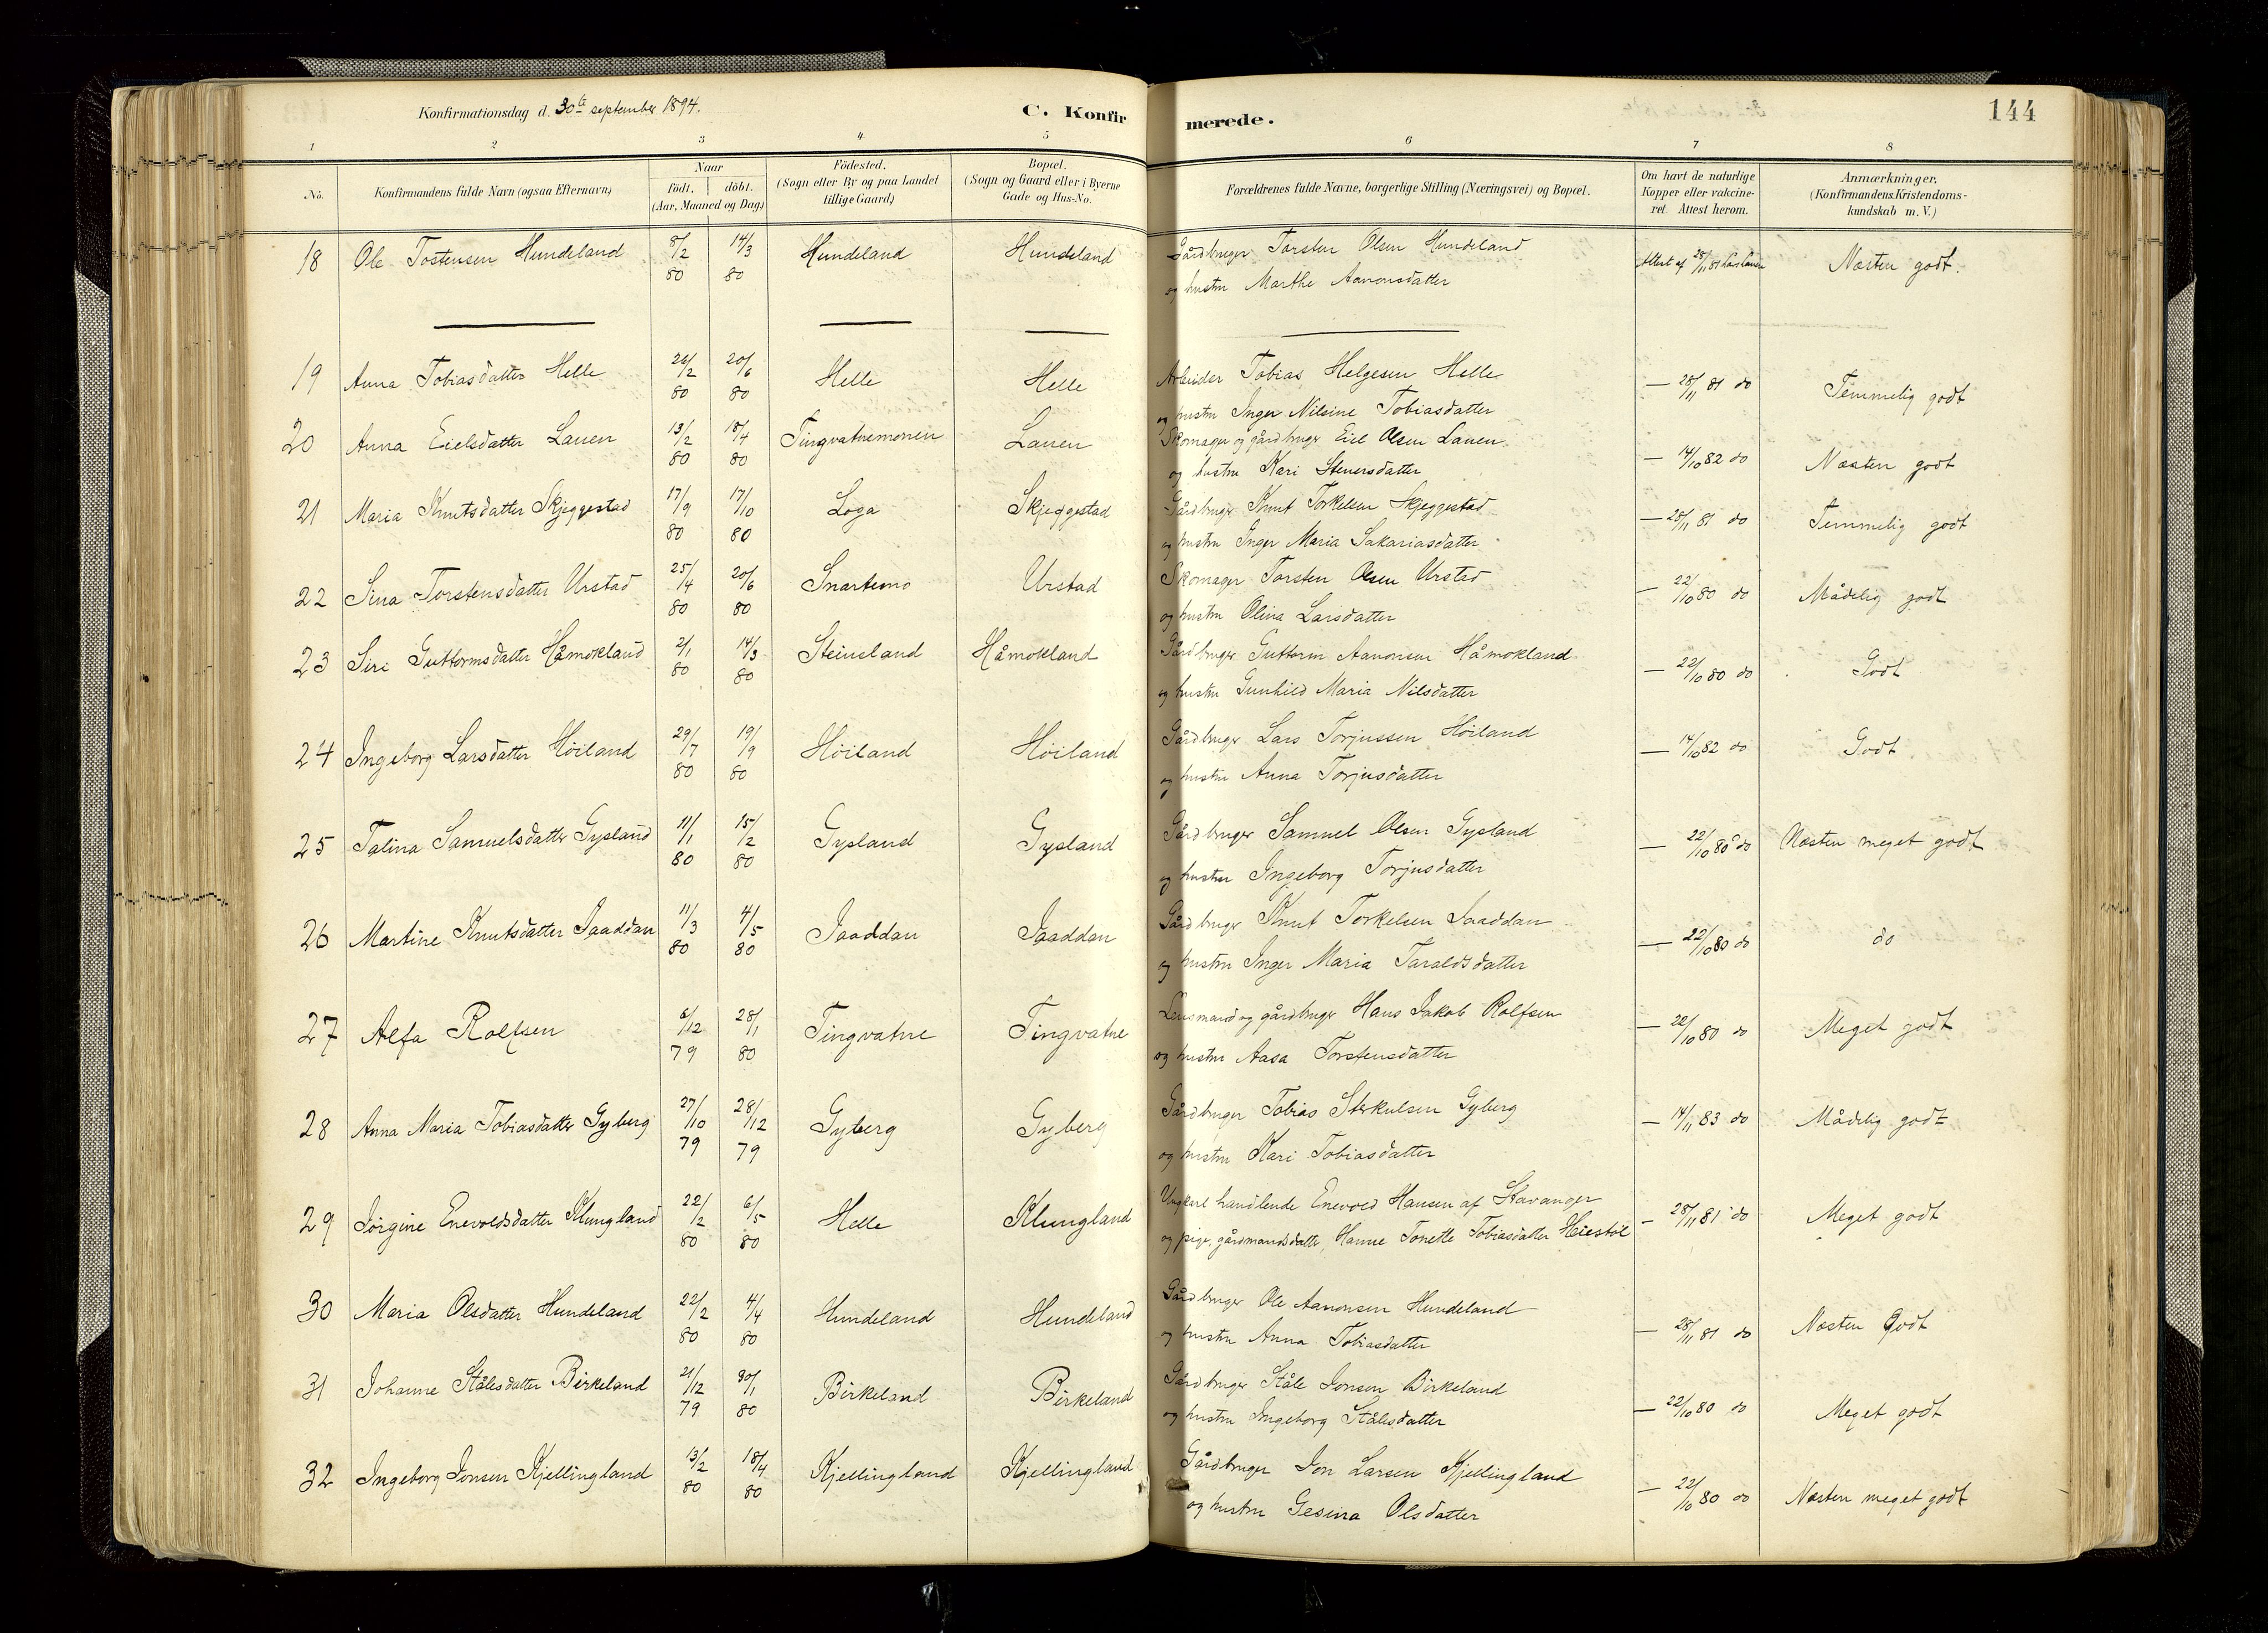 Konfirmationsdag d. 30te september 1894.
C. Konfirmerede.
144
1 2 3 4 5 6 7 8
No.
Konfirmandens fulde Navn (ogsaa Efternavn)
Naar
födt. döbt.
(Aar, Maaned og Dag)
Födested.
(Sogn eller By og paa Landet
tillige Gaard)
Bopæl.
(Sogn og Gaard eller i Byerne
Gade og Hus-No.
Forældrenes fulde Navne, borgerlige Stilling (Næringsvei) og Bopæl.
Om havt de naturlige
Kopper eller vakcine-
ret. Attest herom.
Anmærkninger.
(Konfirmandens Kristendoms-
kundskab m. V.)
18 Ole Tostensen Hundeland 8/2 80 14/3 80 Hundeland Hundeland Gårdbruger Torsten Olsen Hundeland
og hustru Marthe Aanonsdatter
Attest af 28/11 81 Næsten godt.
19 Anna Tobiasdatter Helle 24/2 80 20/6 80 Helle Helle Arbeider Tobias Helgesen Helle
og hustru Inger Nilsine Tobiasdatter
— 28/11 81 do Temmelig godt
20 Anna Eielsdatter Lauen 13/2 80 18/4 80 Tingvatnemonen Lauen Skomager og gårdbruger Eiel Olsen Lauen
og hustru Kari Steuersdatter
— 14/10 82 do Næsten godt
21 Maria Knutsdatter Skjeggestad 17/9 80 17/10 80 Loga Skjeggestad Gårdbruger Knut Torkelsen Skjeggestad
og hustru Inger Maria Sakariasdatter
— 28/11 81 do Temmelig godt
22 Sina Torstensdatter Urstad 25/4 80 20/6 80 Snartemo Urstad Skomager Torsten Olsen Urstad
og hustru Olina Larsdatter
— 22/10 80 do Mådelig godt
23 Siri Guttormsdatter Håmokland 2/1 80 14/3 80 Steinsland Håmokland Gårdbruger Guttorm Aanonsen Håmokland
og hustru Gunhild Maria Nilsdatter
— 22/10 80 do Godt
24 Ingeborg Larsdatter Höiland 29/7 80 19/9 80 Höiland Höiland Gårdbruger Lars Torjussen Höiland
og hustru Anna Torjusdatter
— 14/10 82 do Godt
25 Talina Samuelsdatter Gysland 11/1 80 15/2 80 Gysland Gysland Gårdbruger Samuel Olsen Gysland
og hustru Ingeborg Torjusdatter
— 22/10 80 do Næsten meget godt
26 Martine Knutsdatter Jaaddan 11/3 80 4/5 80 Jaaddan Jaaddan Gårdbruger Knut Torkelsen Jaaddan
og hustru Inger Maria Taraldsdatter
— 22/10 80 do do
27 Alfa Rolfsen 6/12 79 28/1 80 Tingvatne Tingvatne Lensmand og gårdbruger Hans Jakob Rolfsen
og hustru Aasa Torstensdatter
— 22/10 80 do Meget godt
28 Anna Maria Tobiasdatter Gyberg 27/10 79 28/12 79 Gyberg Gyberg Gårdbruger Tobias Gyberg
og hustru Kari Tobiasdatter
— 14/11 83 do Mådelig godt
29 Jörgine Enevoldsdatter Klungland 22/2 80 6/5 80 Helle Klungland Ungkarl handlende Enevold Hansen af Stavanger
og pige, gårdmandsdatter, Hanne Tonette Tobiasdatter Heiestöl
— 28/11 81 do Meget godt
30 Maria Olsdatter Hundeland 22/2 80 4/4 80 Hundeland Hundeland Gårdbruger Ole Aanonsen Hundeland
og hustru Anna Tobiasdatter
— 28/11 81 do Næsten Godt
31 Johanne Stålesdatter Birkeland 21/12 79 30/1 80 Birkeland Birkeland Gårdbruger Ståle Jonsen Birkeland
og hustru Ingeborg Stålesdatter
— 22/10 80 do Meget godt
32 Ingeborg Jonsen Kjellingland 13/2 80 18/4 80 Kjellingland Kjellingland Gårdbruger Jon Larsen Kjellingland
og hustru Gesina Olsdatter
— 22/10 80 do Næsten meget godt